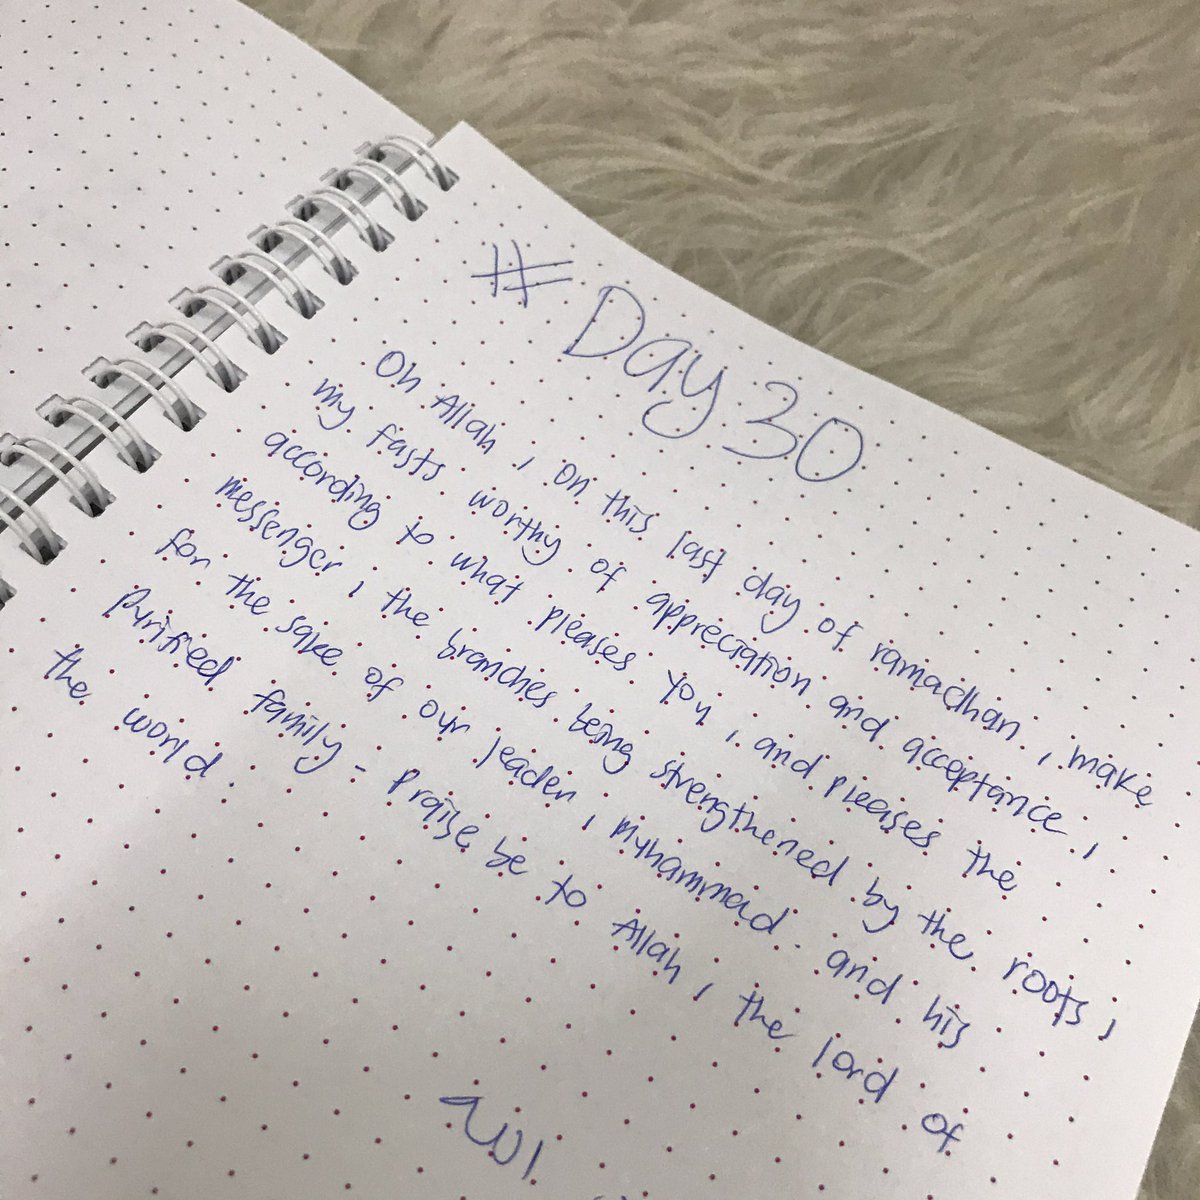 # Day 30
Oh Allah, on this last day of ramadhan, make
my fasts worthy of appreciation and acceptance,
according to what pleases you, and pleases the
messenger, the branches being strengthened by the roots,
for the sake of our leader, muhammad. and his
purified family - praise be to Allah, the lord of
the world.